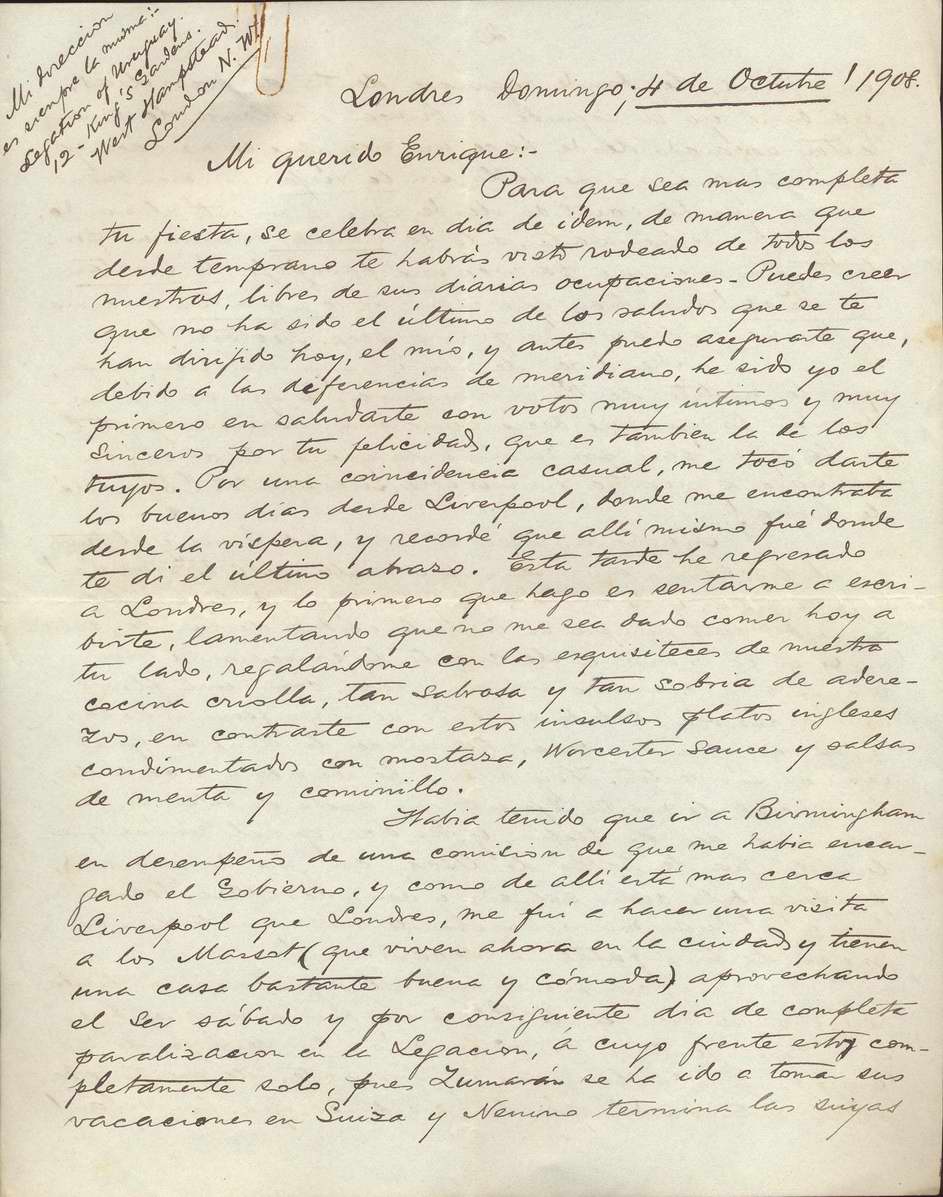 Mi direccion
es siempre la misma:-
Legation of Uruguay.
12 - King's Gardens.
West Hampstead.
London N. W.
Londres Domingo, 4 de Octubre / 1908.
Mi querido Enrique:-
Para que sea mas completa
tu fiesta, se celebra en dia de idem, de manera que
desde temprano te habrás visto rodeado de todos los
nuestros, libres de sus diarias ocupaciones - Puedes creer
que no ha sido el último de los saludos que se te
han dirijido hoy, el mío, y antes puedo asegurarte que,
debido a las diferencias de meridiano, he sido yo el
primero en saludarte con votos muy íntimos y muy
sinceros por tu felicidad, que es tambien la de los
tuyos. Por una coincidencia casual, me tocó darte
los buenos dias desde Liverpool, donde me encontraba
desde la víspera, y recordé que allí mismo fué donde
te di el último abrazo. Esta tarde he regresado
a Londres, y lo primero que hago es sentarme a escri-
birte, lamentando que no me sea dado comer hoy a
tu lado, regalándome con las esquisiteces de nuestra
cocina criolla, tan sabrosa y tan sobria de adere-
zos, en contraste con estos insulsos platos ingleses
condimentados con mostaza, Worcester Sauce y salsas
de menta y cominillo.
Habia tenido que ir a Birmingham
en desempeño de una comision de que me habia encar-
gado el Gobierno, y como de allí está mas cerca
Liverpool que Londres, me fuí a hacer una visita
a los Massot (que viven ahora en la ciudad y tienen
una casa bastante buena y cómoda) aprovechando
el ser sábado y por consiguiente dia de completa
paralizacion en la Legacion, á cuyo frente estoy com-
pletamente solo, pues Zumarán se ha ido a tomar sus
vacaciones en Suiza y Nenino termina las suyas